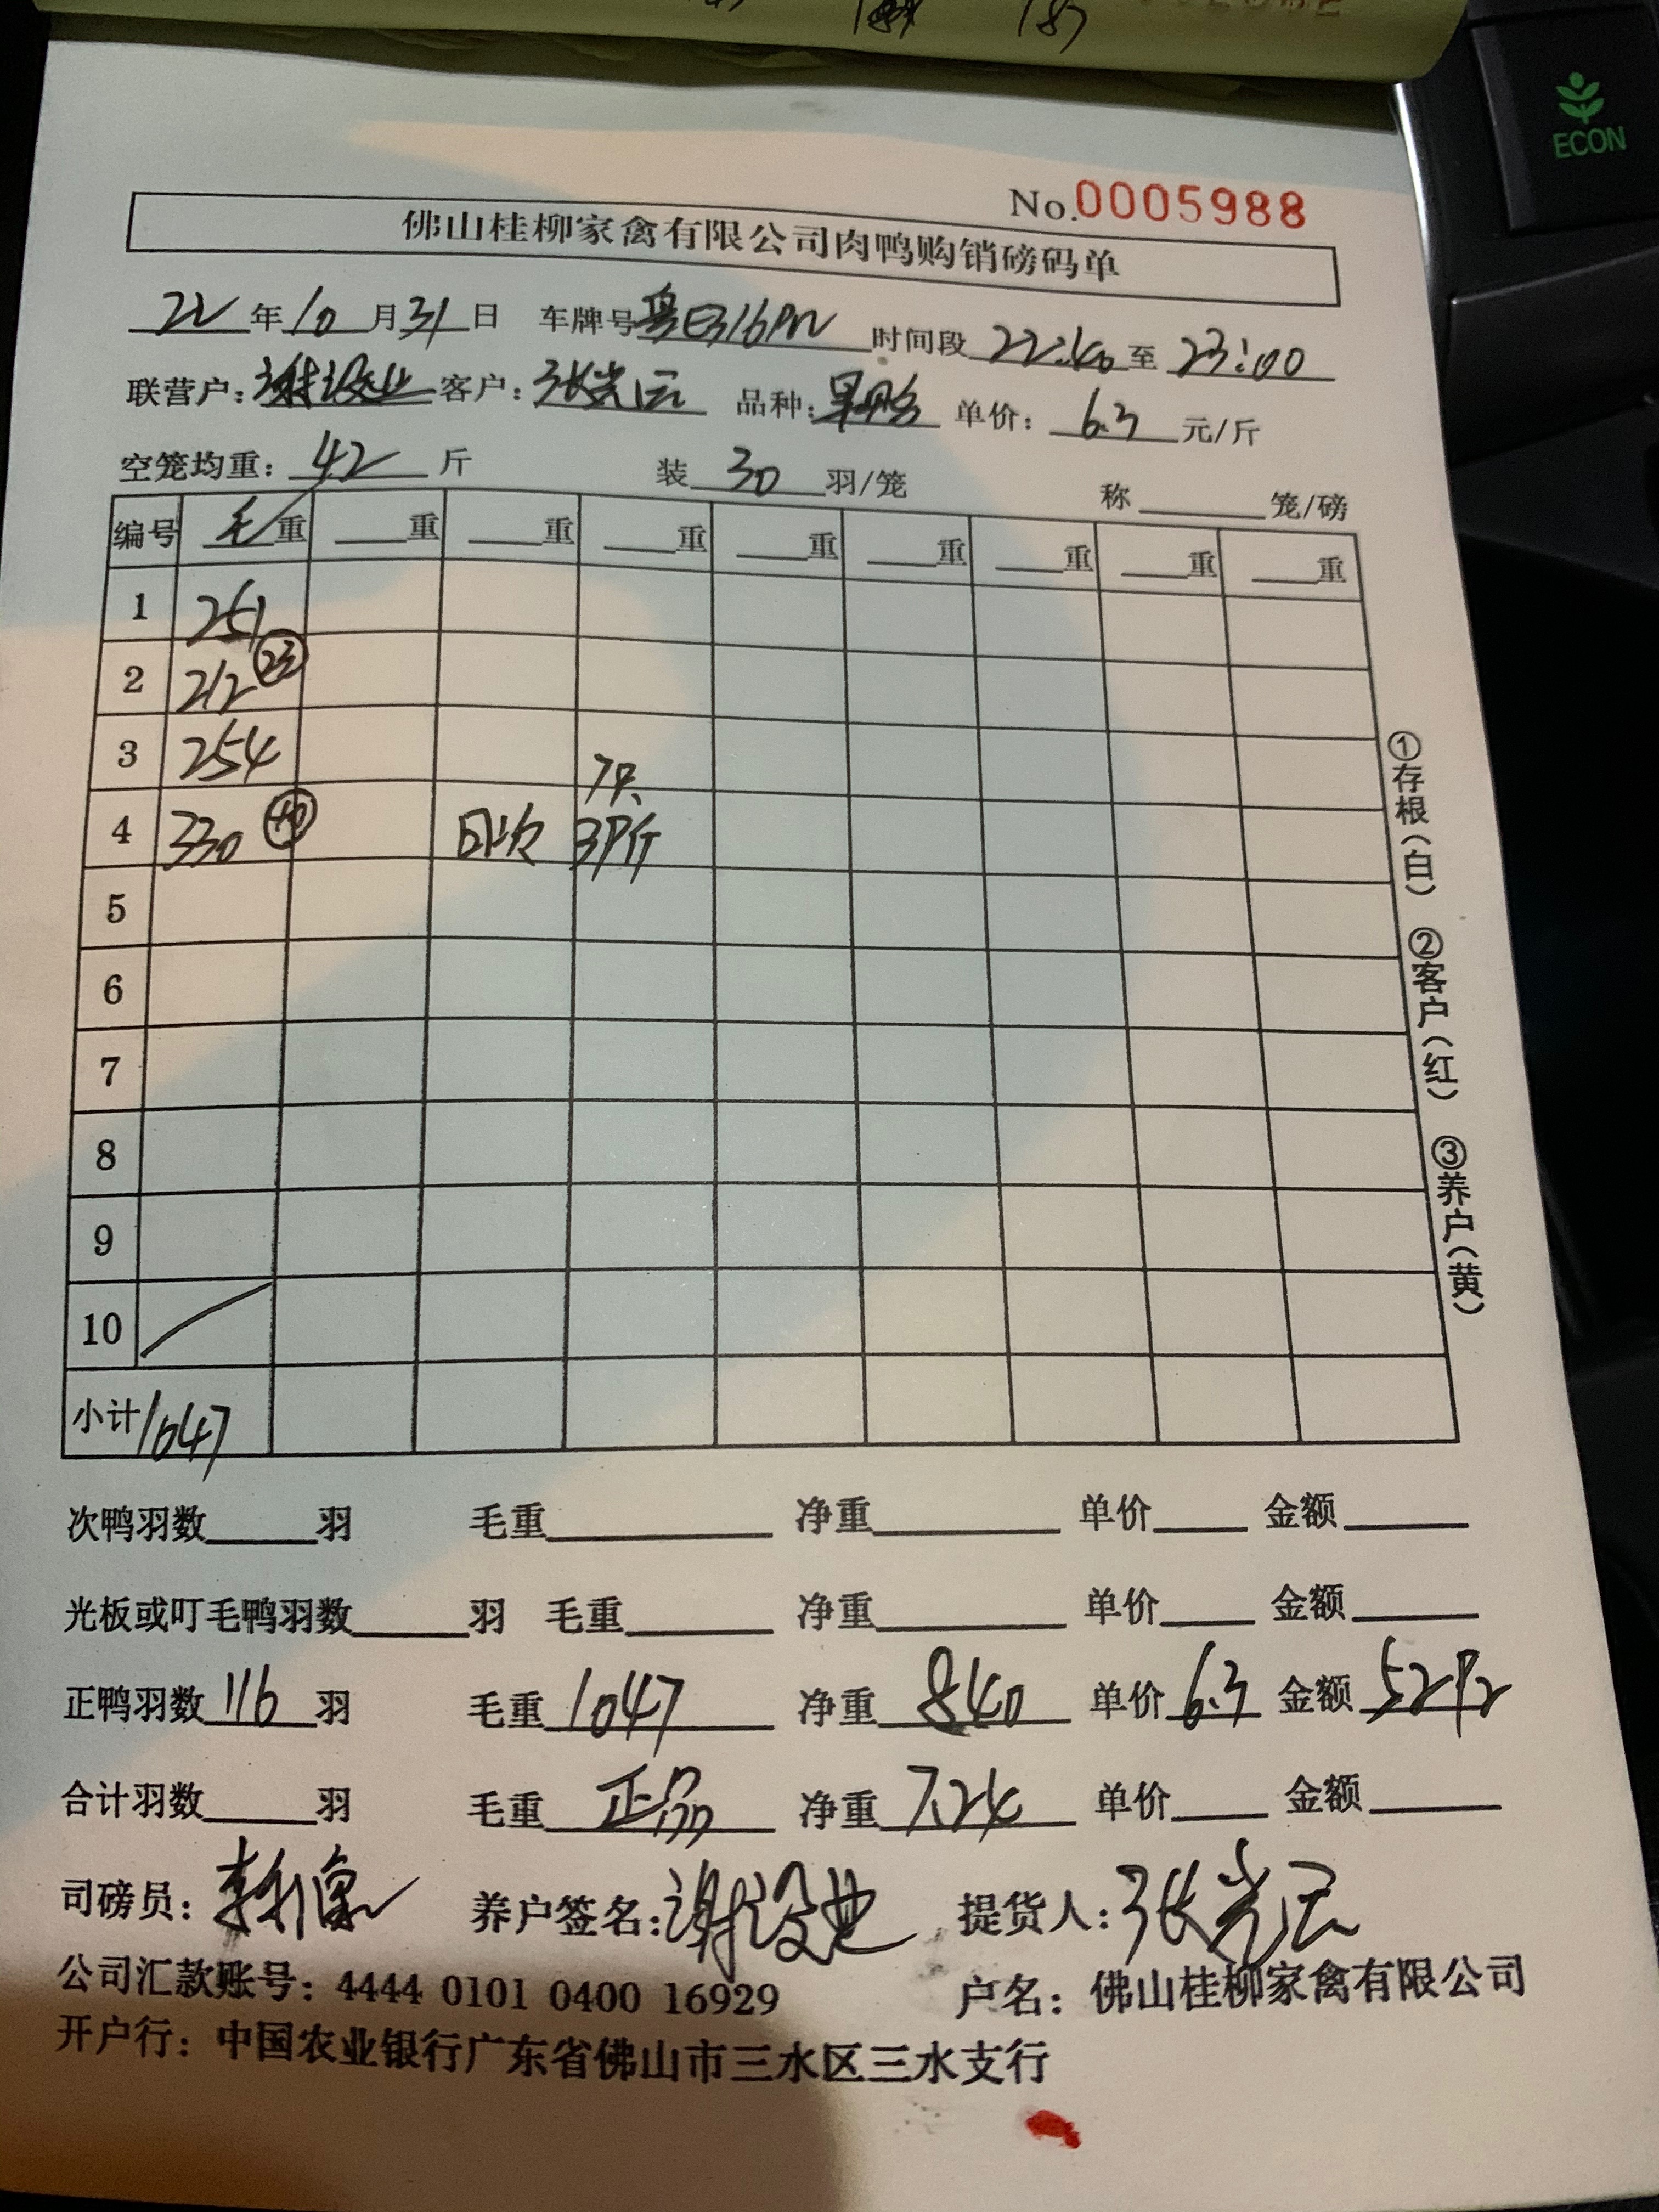 187
ECON
No.0005988
佛山桂柳家禽有限公司肉鸭购销磅码单
22年10月31日 车牌号粤E316PM 时间段22:40至23:00
联营户: 客户:张光云 品种: 单价:6.3元/斤
空笼均重:42斤 装30羽/笼 称 笼/磅
编号 毛重 重 重 重 重 重 重 重 重
1 251
2 212 23
3 254
4 330
7只
日次 39斤
5
6
7
8
9
10
小计 1047
次鸭羽数 羽 毛重 净重 单价 金额
光板或叮毛鸭羽数 羽 毛重 净重 单价 金额
正鸭羽数116羽 毛重1047 净重840 单价6.3 金额5292
合计羽数 羽 毛重正品 净重7.24 单价 金额
司磅员: 养户签名: 提货人:张光云
公司汇款账号:4444 0101 0400 16929 户名:佛山桂柳家禽有限公司
开户行:中国农业银行广东省佛山市三水区三水支行
①存根(白) ②客户(红) ③养户(黄)